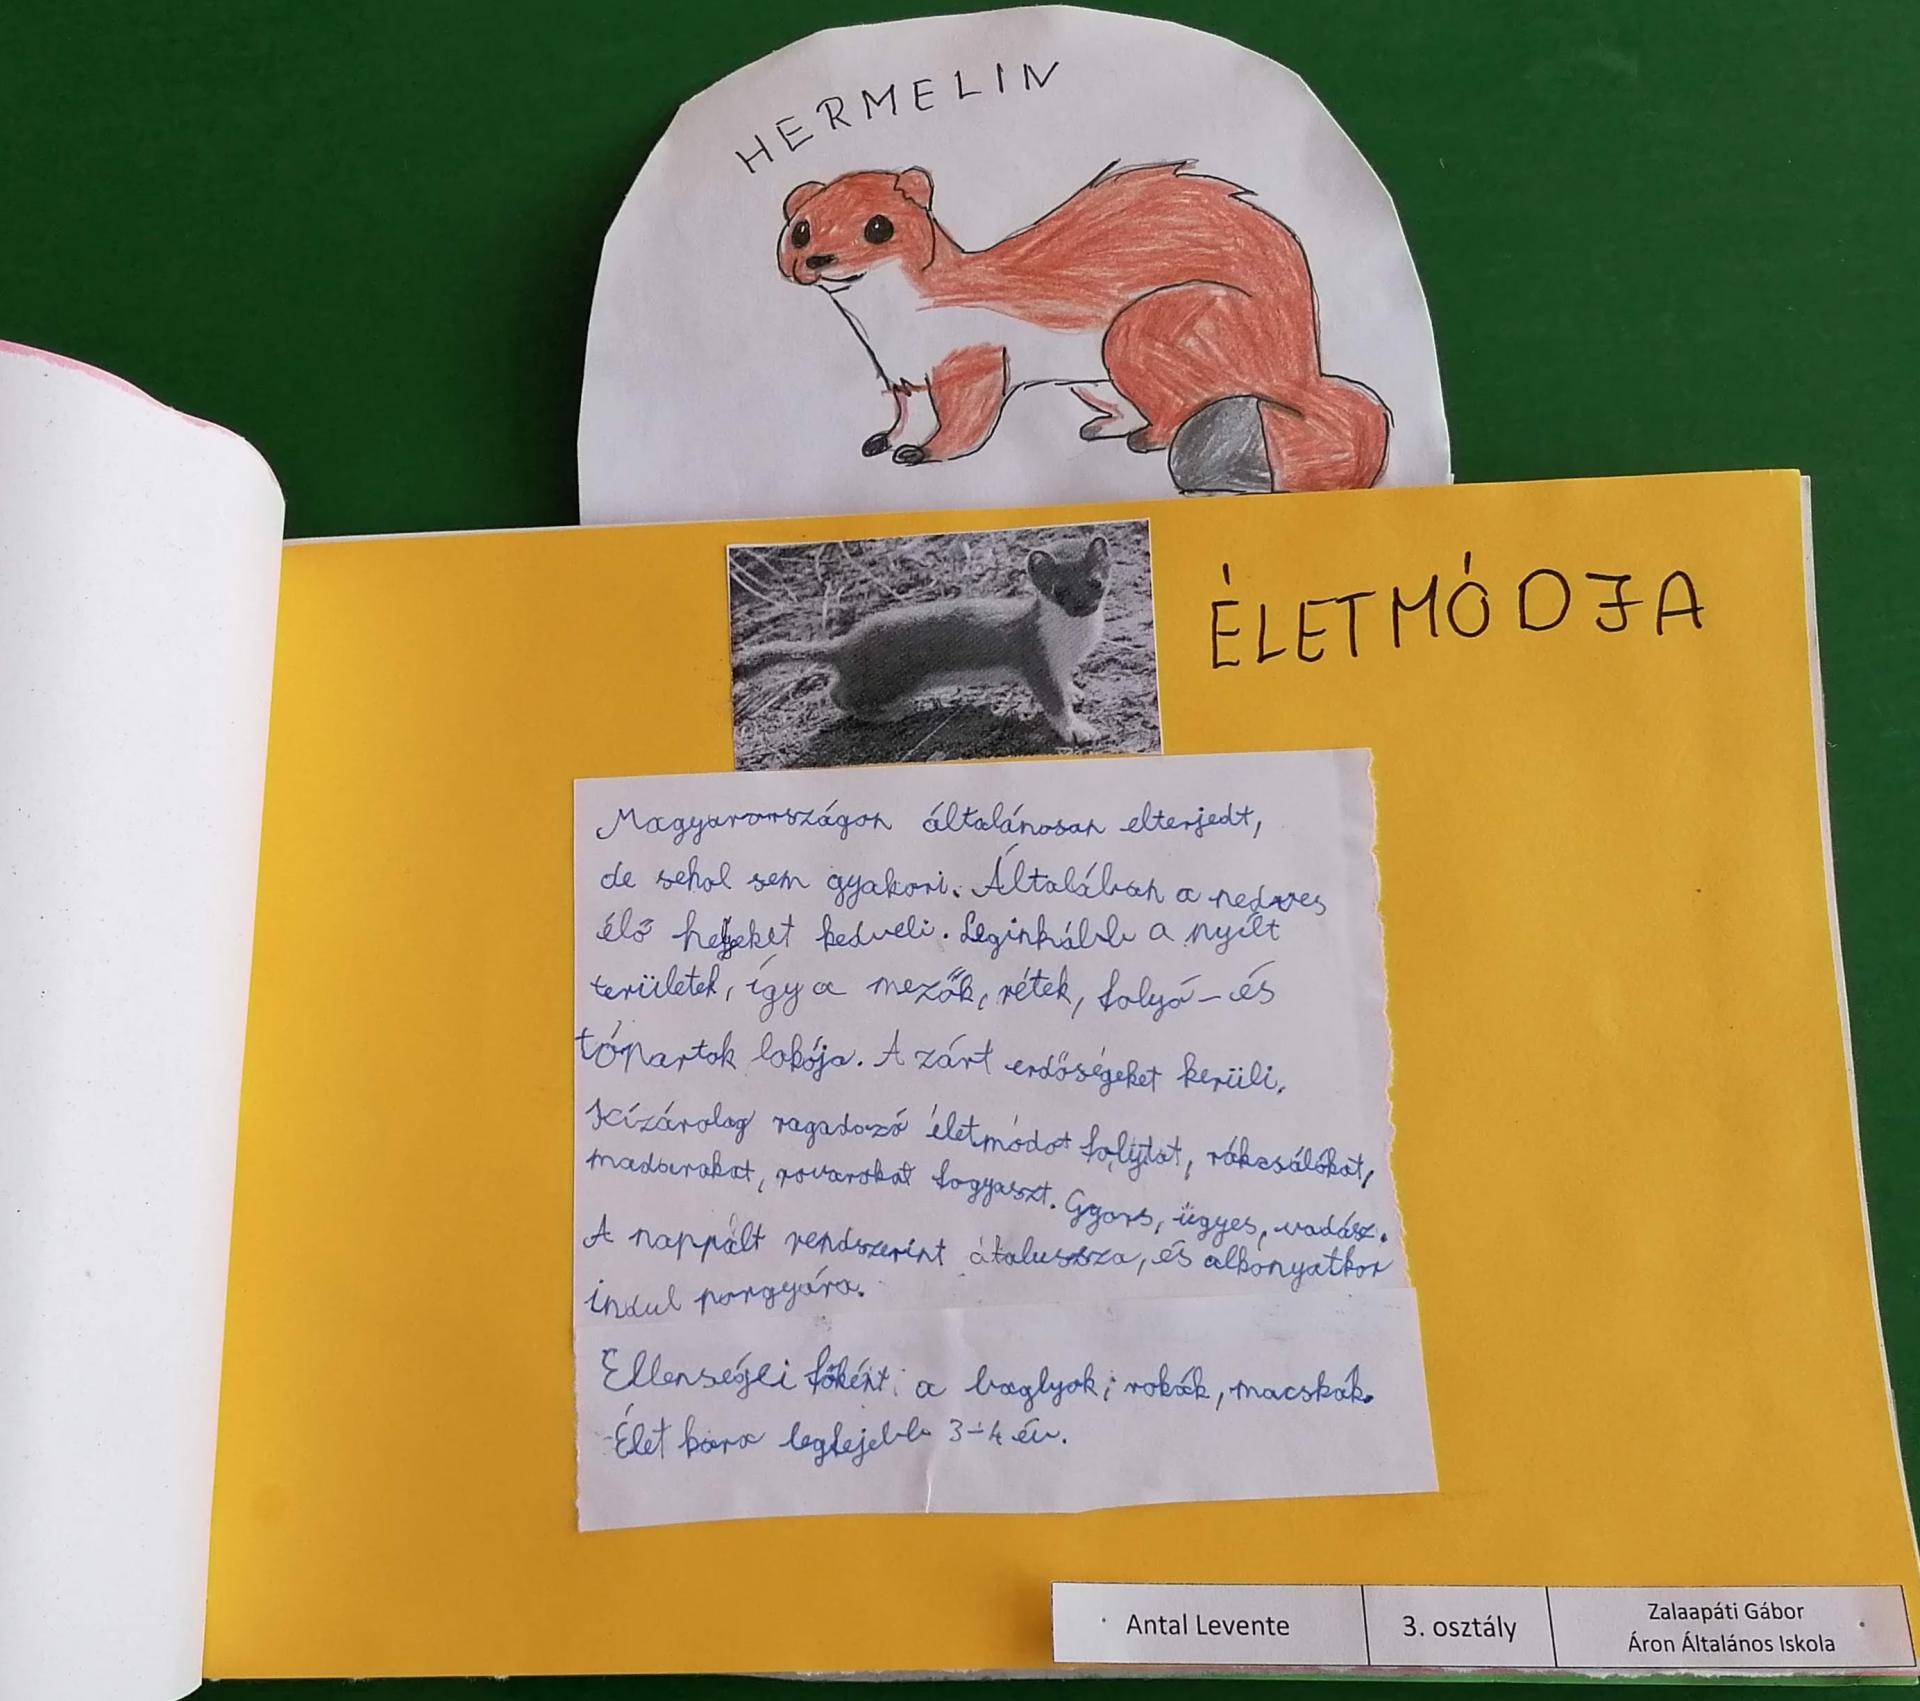 HERMELIN
ÉLETMÓDJA
Magyarországon általánosan elterjedt,
de sehol sem gyakori. Általában a nedves
élő helyeket kedveli. Leginkább a nyílt
területek, így a mezők, rétek, folyó- és
tópartok lakója. A zárt erdőségeket kerüli.
Kízárolag ragadozó életmódot folytat, rákcsálókat,
madarakat, rovarokat fogyaszt. Gyors, ügyes, vadász.
A nappalt rendszerint átalussza, és alkonyatkor
indul porgyára.
Ellenségei főként a baglyok, rokák, macskák.
Élet kora legfejebb 3-4 év.
Antal Levente
3. osztály
Zalaapáti Gábor
Áron Általános Iskola